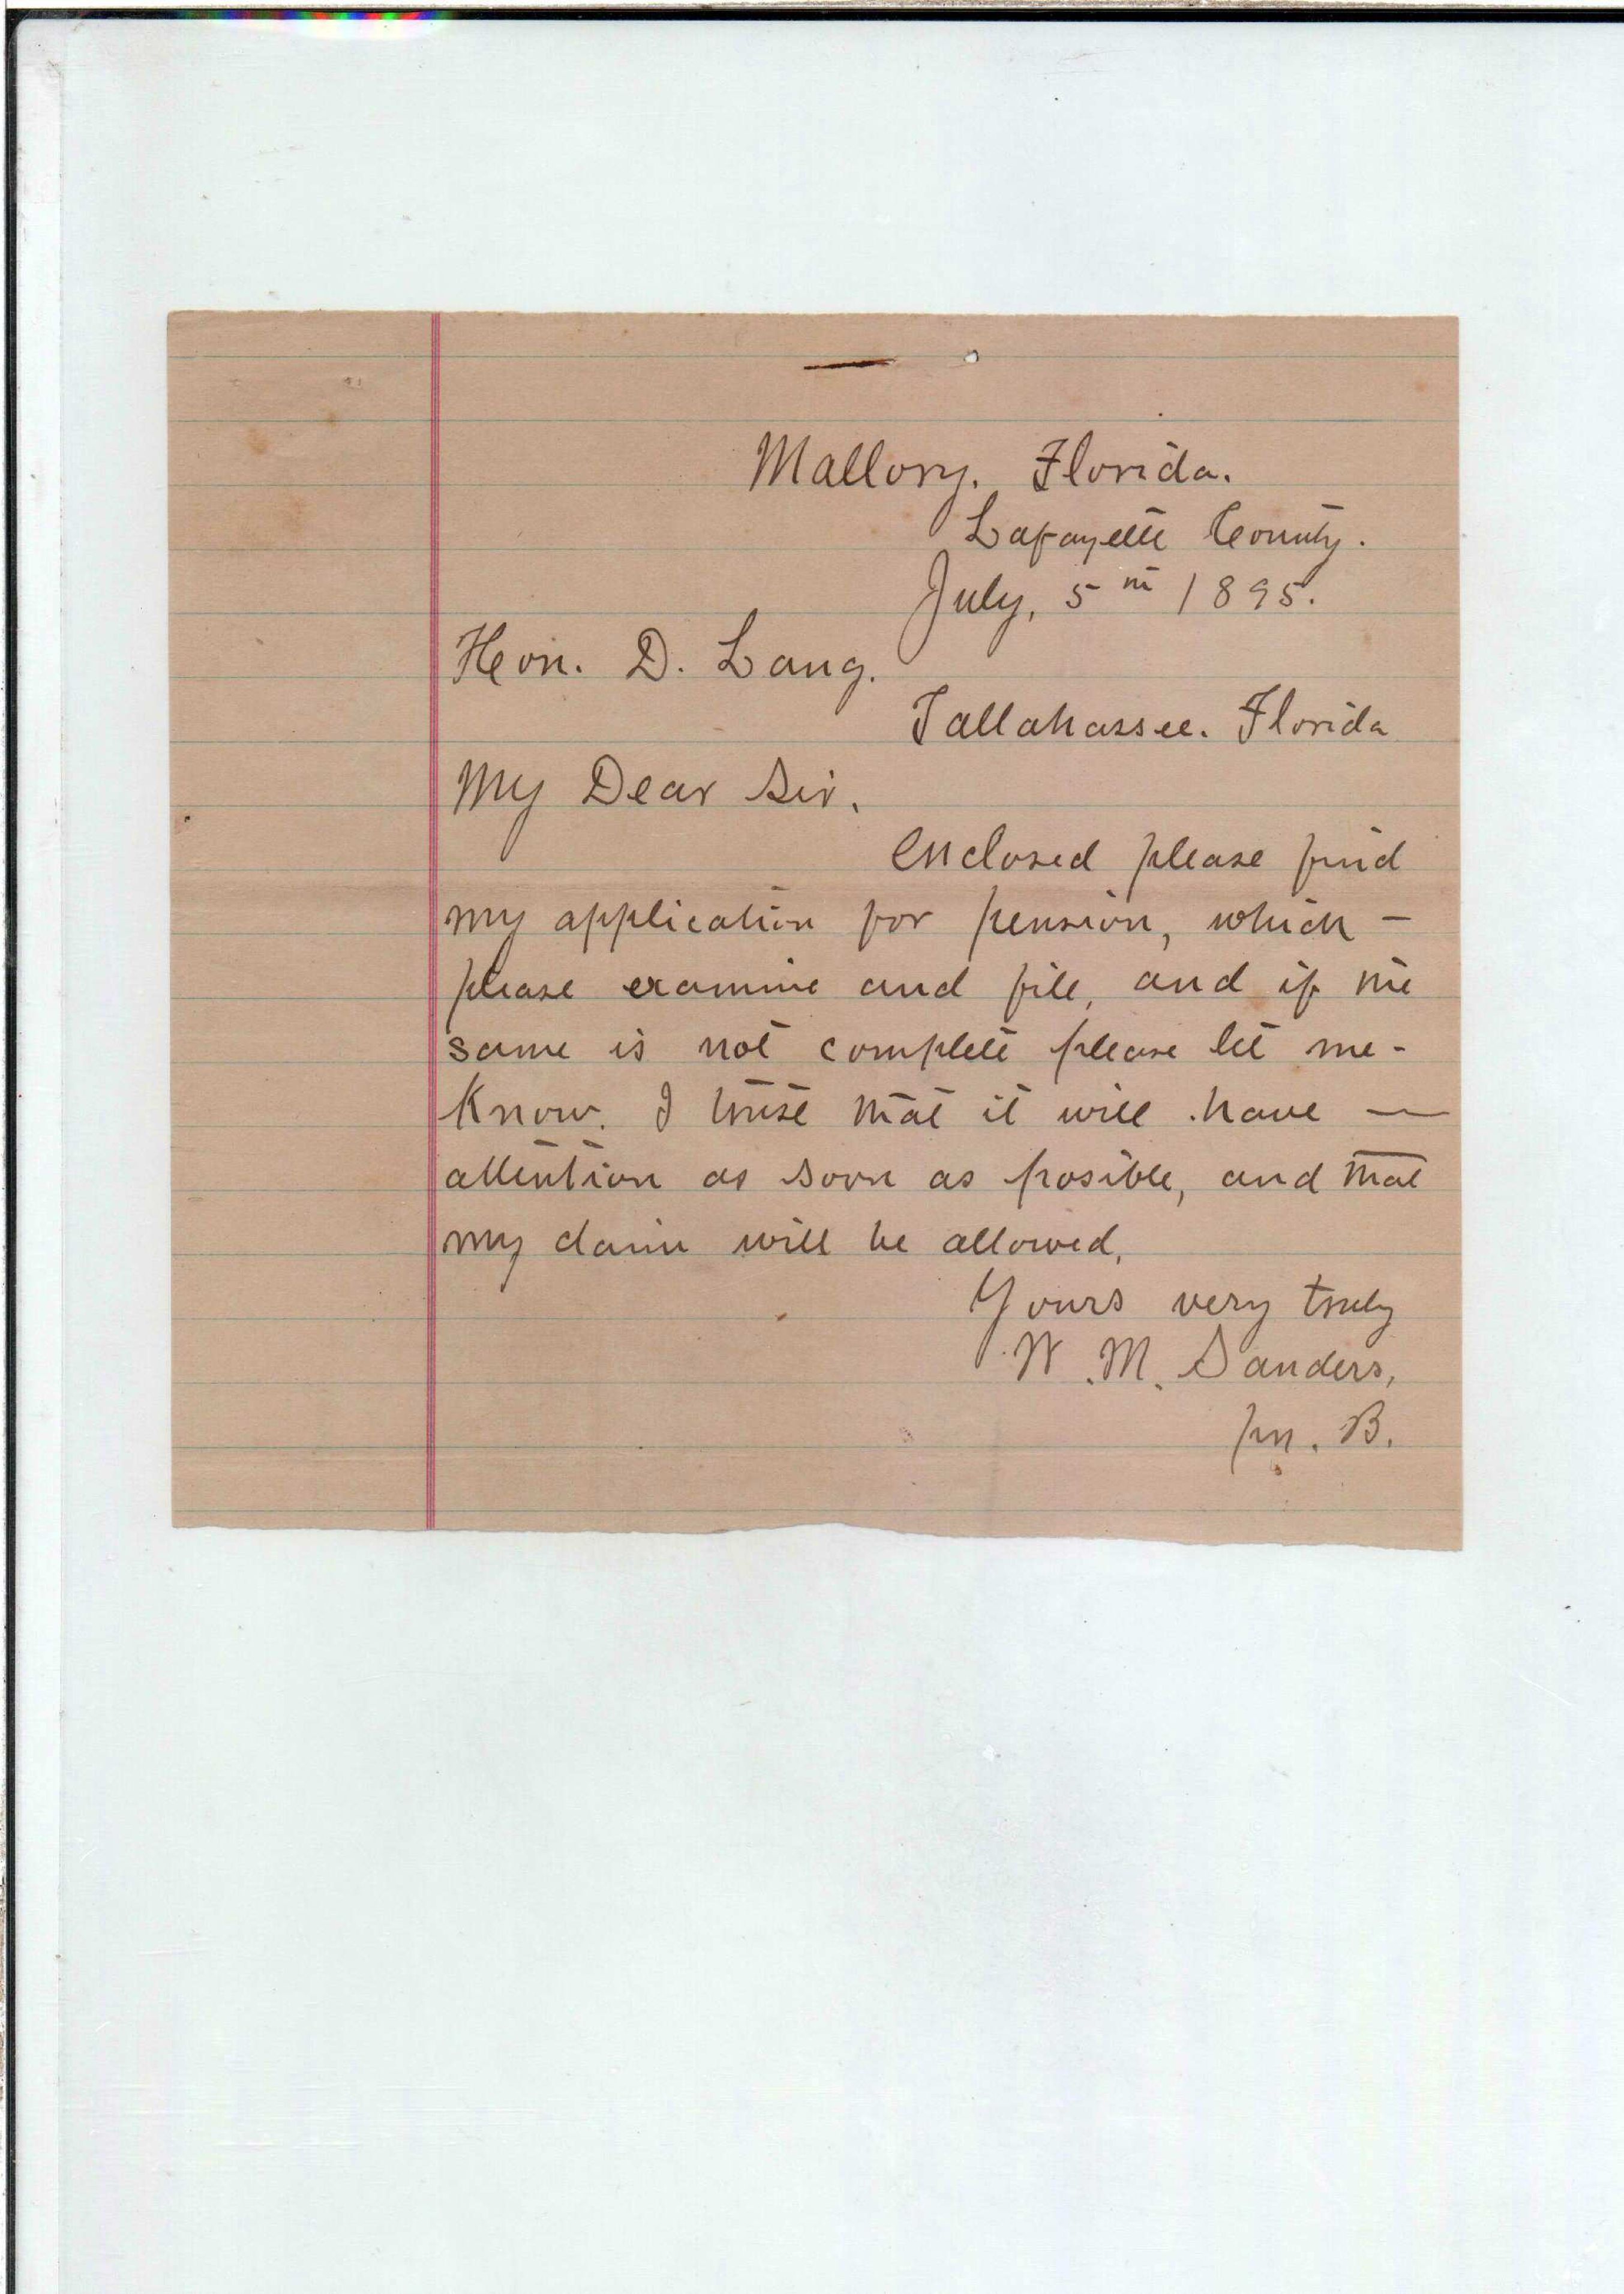 Mallory. Florida.
Lafayette County.
July, 5th 1895.
Hon. D. Lang.
Tallahassee. Florida
My Dear Sir.
Enclosed please find
my application for pension, which -
please examine and file, and if the
same is not complete please let me -
Know. I trust that it will have —
attention as soon as posible, and that
my claim will be allowed,
Yours very truly
W. M. Sanders,
B.